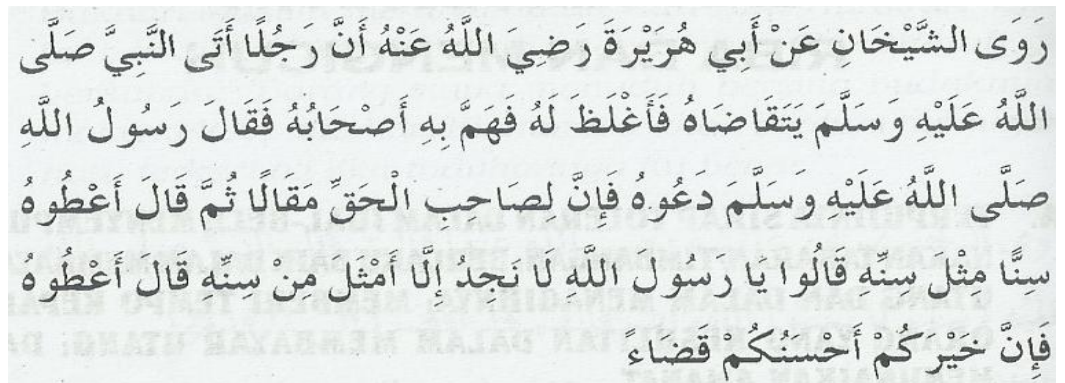 رَوَى الشَّيْخَانِ عَنْ أَبِي هُرَيْرَةَ رَضِيَ اللَّهُ عَنْهُ أَنَّ رَجُلًا أَتَى النَّبِيَّ صَلَّى
اللَّهُ عَلَيْهِ وَسَلَّمَ يَتَقَاضَاهُ فَأَغْلَظَ لَهُ فَهَمَّ بِهِ أَصْحَابُهُ فَقَالَ رَسُولُ اللَّهِ
صَلَّى اللَّهُ عَلَيْهِ وَسَلَّمَ دَعُوهُ فَإِنَّ لِصَاحِبِ الْحَقِّ مَقَالًا ثُمَّ قَالَ أَعْطُوهُ
سِنًّا مِثْلَ سِنِّهِ قَالُوا يَا رَسُولَ اللَّهِ لَا نَجِدُ إِلَّا أَمْثَلَ مِنْ سِنِّهِ قَالَ أَعْطُوهُ
فَإِنَّ خَيْرَكُمْ أَحْسَنُكُمْ قَضَاءً